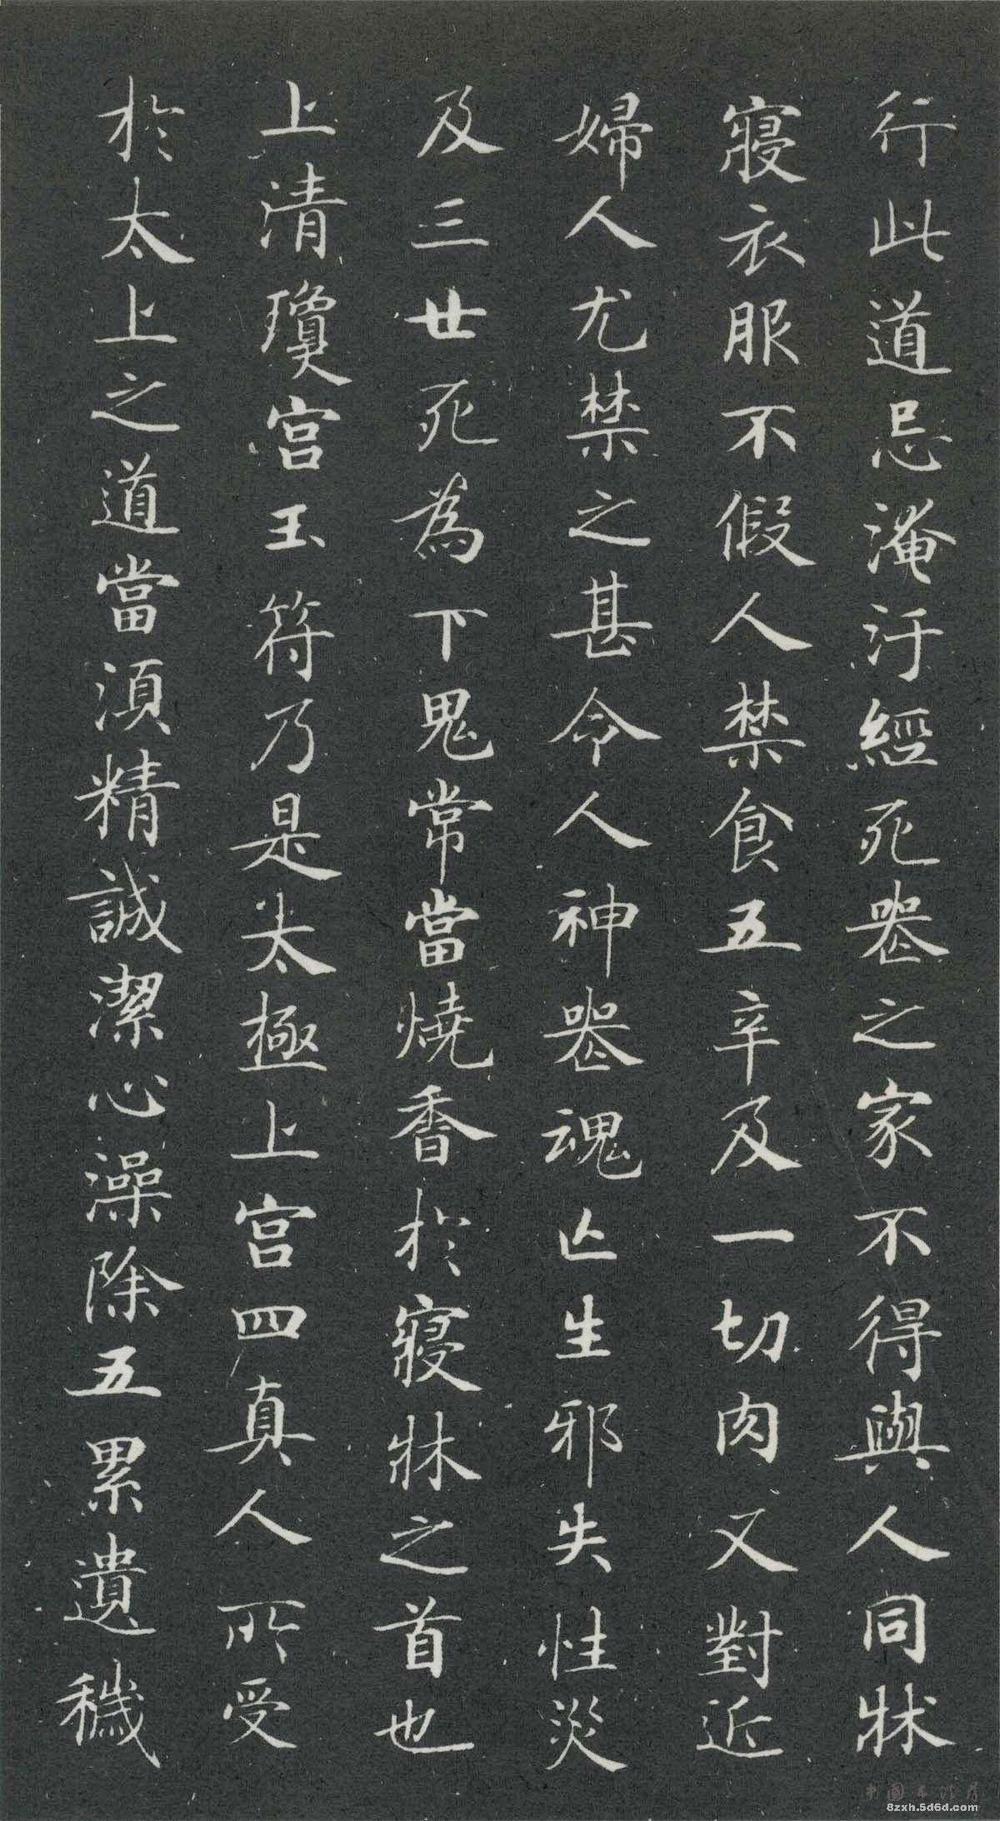 行此道忌淹汙經死喪之家不得與人同牀
寢衣服不假人禁食五辛及一切肉又對近
婦人尤禁之甚令人神喪魂亡生邪失性災
及三世死為下鬼常當燒香於寢牀之首也
上清瓊宮玉符乃是太極上宮四真人所受
於太上之道當須精誠潔心澡除五累遺穢
8zxh.5d6d.com